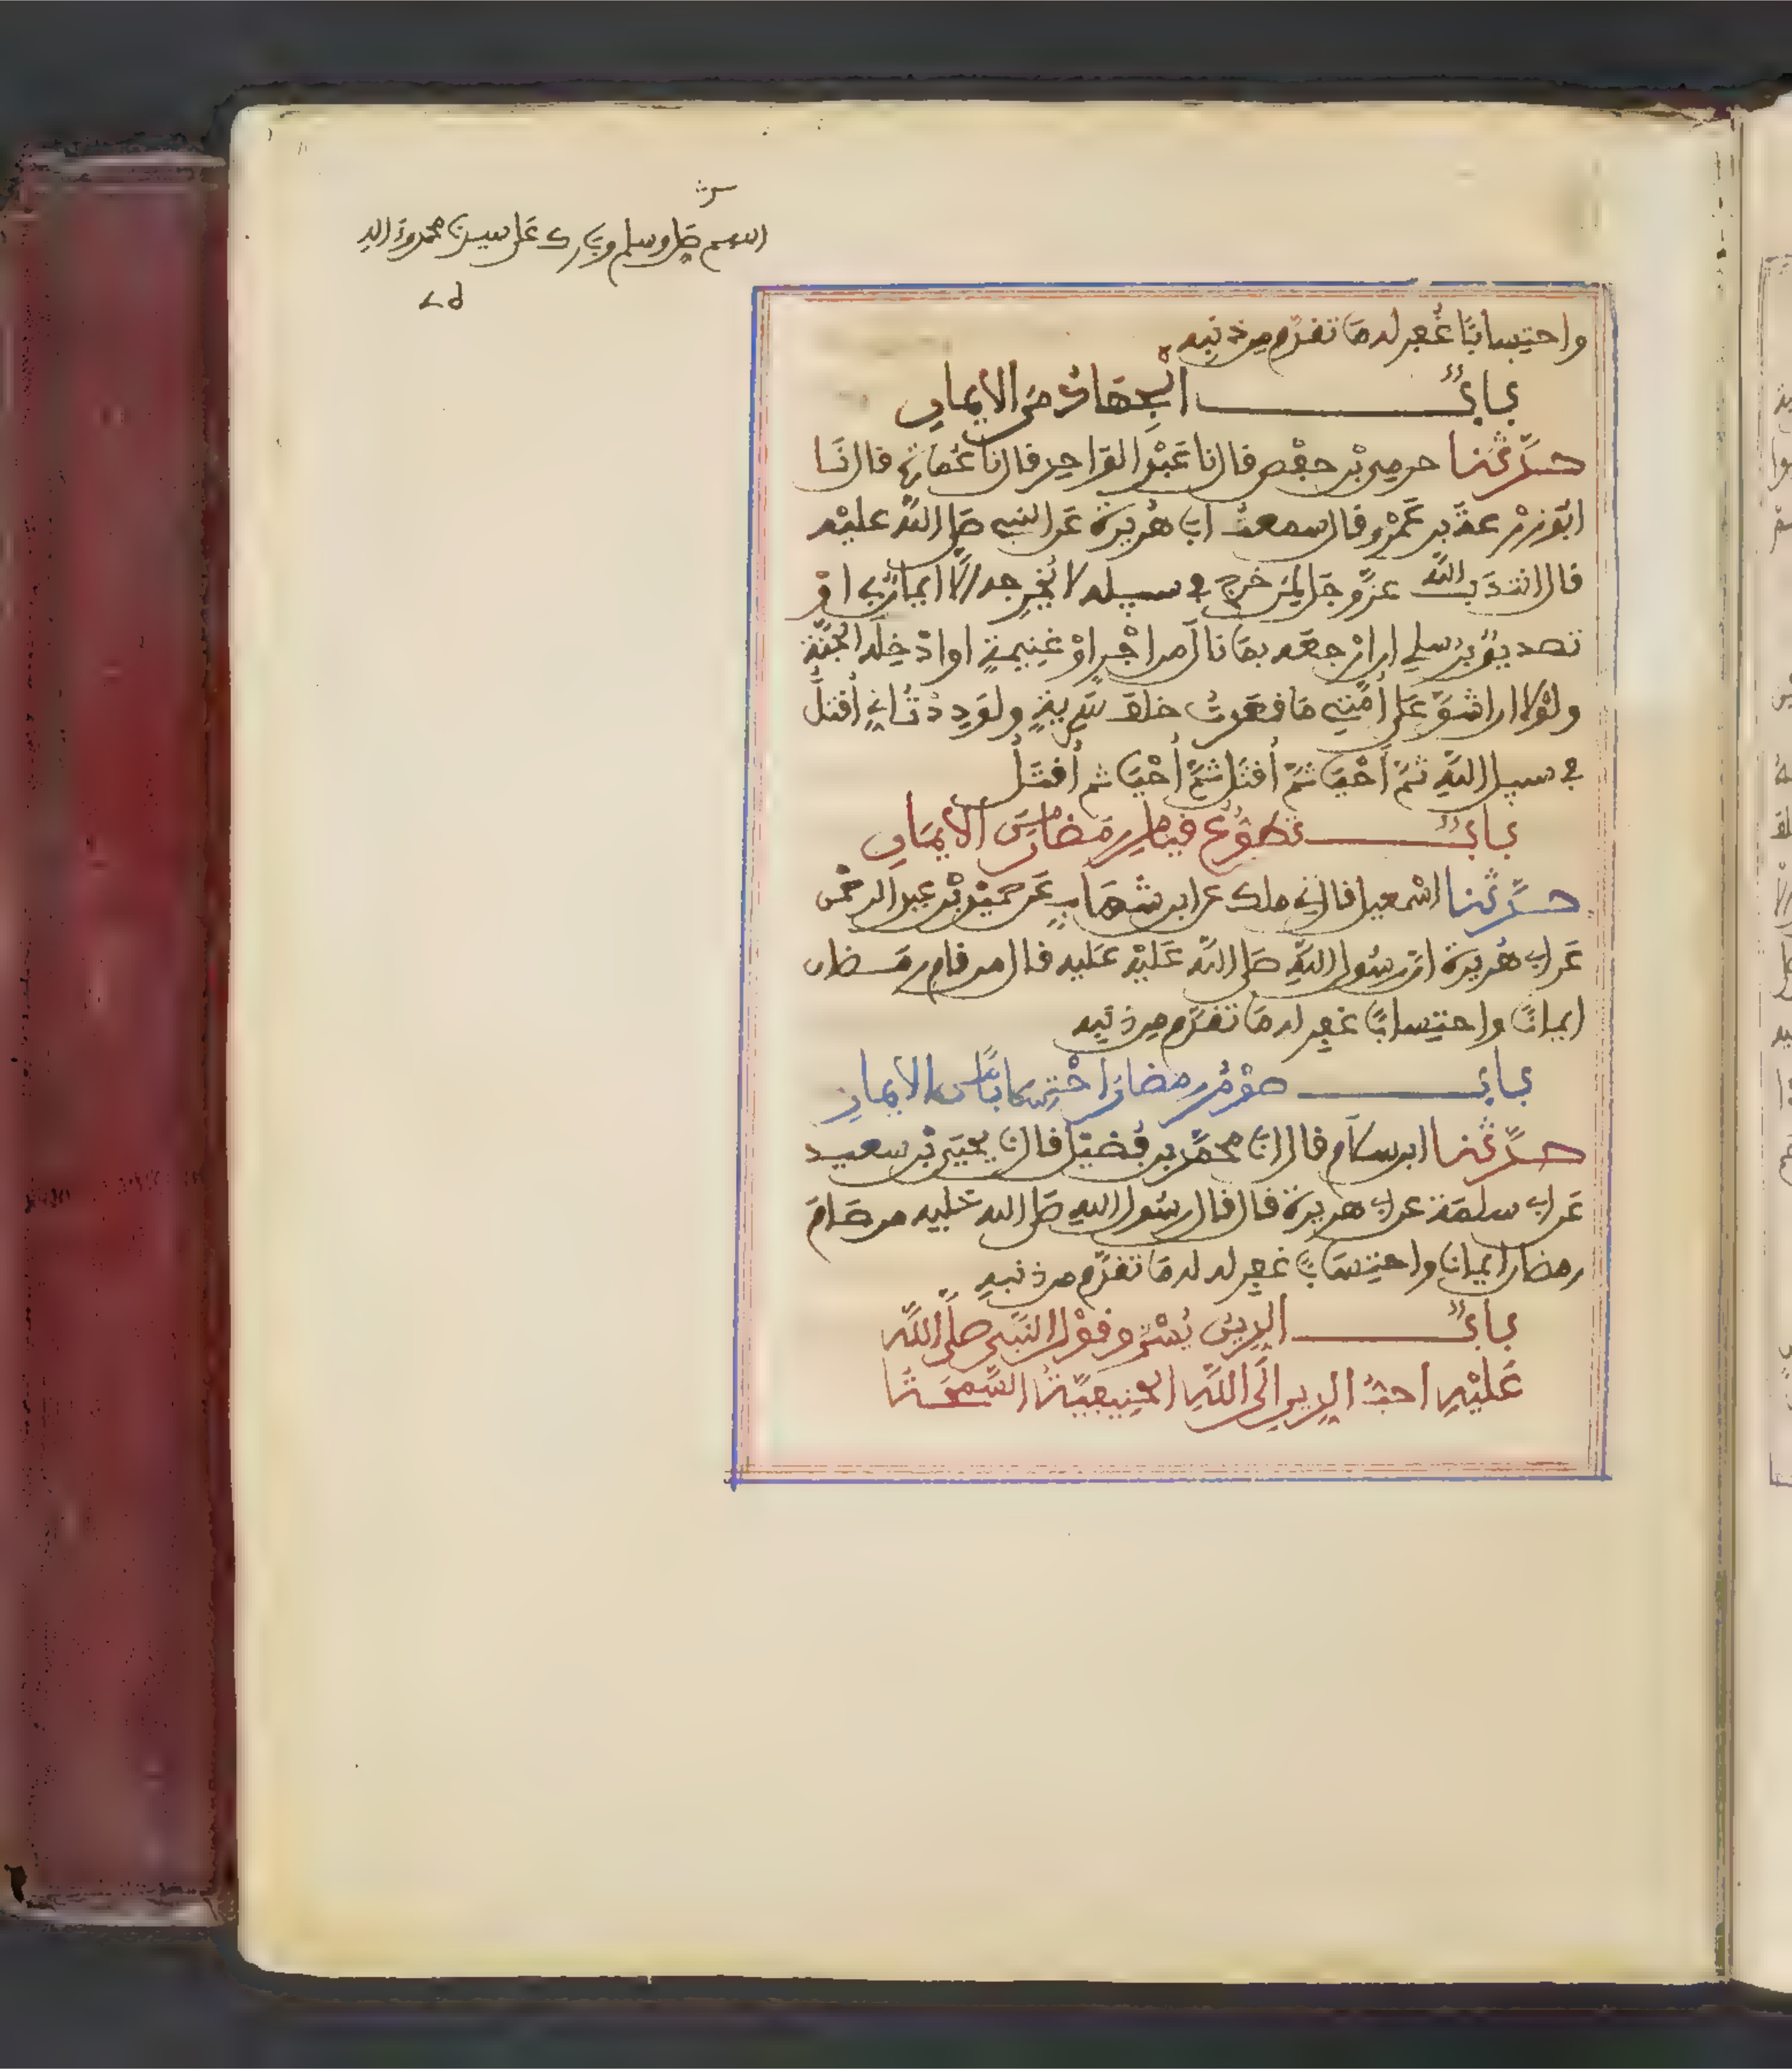 اللهم صل وسلم وبارك على سيدنا محمد وءاله
واحتسابا غفر له ما تقدم من ذنبه
باب الجهاد من الايمان
حدثنا حرمي بن حفص قال نا عبد الواحد قال نا عمارة قال نا
ابو زرعة بن عمرو قال سمعت ابا هريرة عن النبي صلى الله عليه
قال انتدب الله عز وجل لمن خرج في سبيله لا يخرجه الا ايمان بي او
تصديق برسلي ان ارجعه بما نال من اجر او غنيمة او ادخله الجنة
ولولا ان اشق على امتي ما قعدت خلف سرية ولوددت اني أقتل
في سبيل الله ثم أحيا ثم أقتل ثم أحيا ثم أقتل
باب تطوع قيام رمضان من الايمان
حدثنا اسمعيل قال ني ملك عن ابن شهاب عن حميد بن عبد الرحمن
عن ابي هريرة ان رسول الله صلى الله عليه عليه قال من قام رمضان
ايمانا واحتسابا غفر له ما تقدم من ذنبه
باب صوم رمضان احتسابا من الايمان
حدثنا ابن سلام قال انا محمد بن فضيل قال نا يحيى بن سعيد
عن ابي سلمة عن ابي هريرة قال قال رسول الله صلى الله عليه من صام
رمضان ايمانا واحتسابا غفر له له ما تقدم من ذنبه
باب الدين يسر وقول النبي صلى الله
عليه احب الدين الى الله الحنيفية السمحة